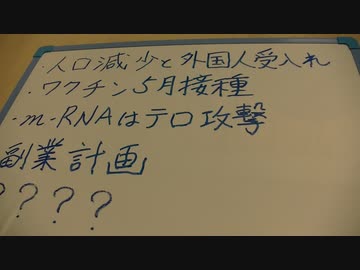 ・人口減少と外国人受入れ
・ワクチン5月接種
・m-RNAはテロ攻撃
副業計画
？？？？